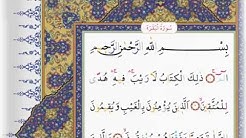 سورة البقرة
بِسْمِ اللَّهِ الرَّحْمَنِ الرَّحِيمِ
الم ذَلِكَ الْكِتَابُ لَا رَيْبَ فِيهِ هُدًى
لِلْمُتَّقِينَ الَّذِينَ يُؤْمِنُونَ بِالْغَيْبِ وَيُقِيمُونَ